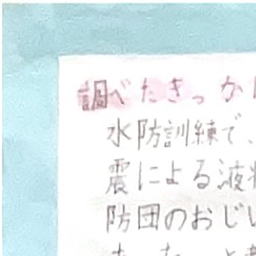 調べたきっか
水防訓練で、
震による液
防団のおじい